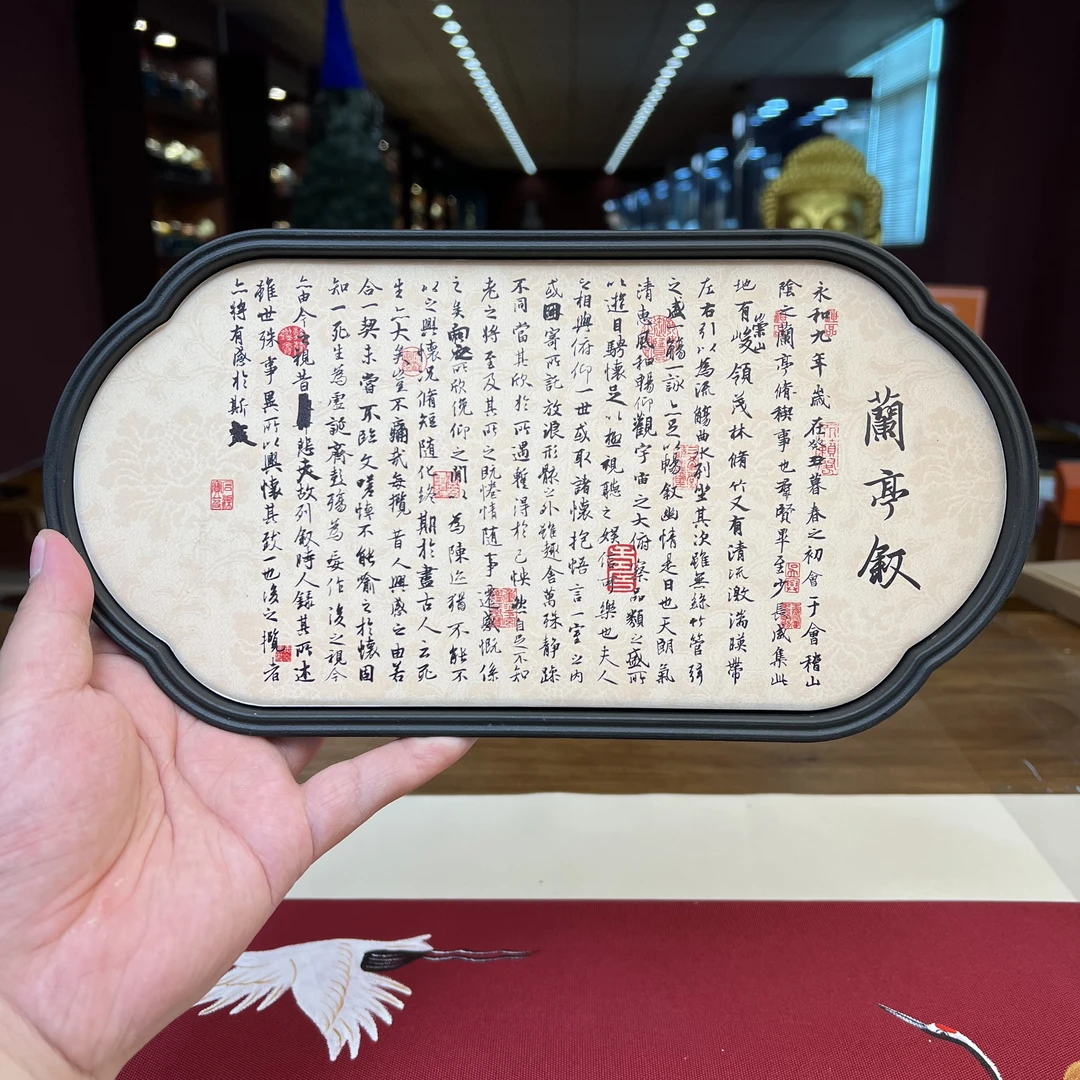 蘭亭叙
永和九年歲在癸丑暮春之初會于會稽山
陰之蘭亭脩禊事也羣賢畢至少長咸集此
地有崇山峻領茂林脩竹又有清流激湍暎帶
左右引以為流觴曲水列坐其次雖無絲竹管弦
之盛一觴一詠亦足以暢叙幽情是日也天朗氣
清惠風和暢仰觀宇宙之大俯察品類之盛所
以遊目騁懷足以極視聽之娛信可樂也夫人
之相與俯仰一世或取諸懷抱悟言一室之內
或因寄所託放浪形骸之外雖趣舍萬殊静躁
不同當其欣於所遇暫得於己快然自足不知
老之將至及其所之既惓情隨事遷感慨係
之矣向之所欣俛仰之閒以為陳迹猶不能不
以之興懷況脩短隨化終期於盡古人云死
生亦大矣豈不痛哉每攬昔人興感之由若
合一契未嘗不臨文嗟悼不能喻之於懷固
知一死生為虛誕齊彭殤為妄作後之視今
亦由今之視昔悲夫故列叙時人錄其所述
雖世殊事異所以興懷其致一也後之攬者
亦將有感於斯文